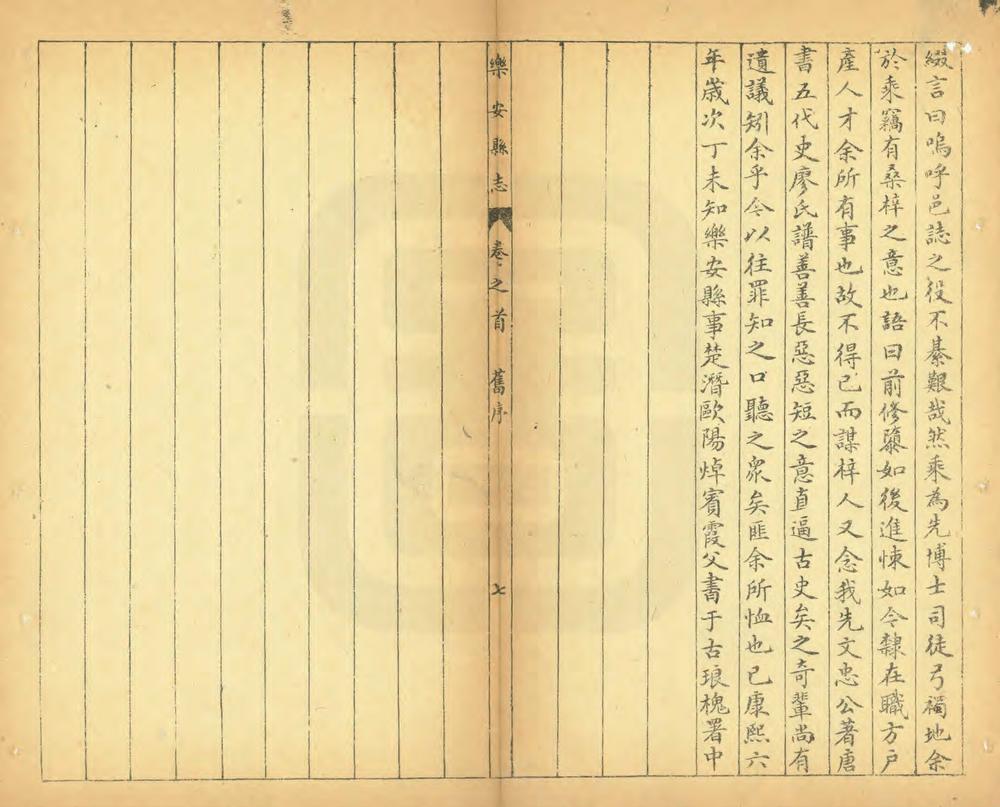 綴言曰嗚呼邑誌之役不綦艱哉然乘為先博士司徒弓禂地余
於乘竊有桑梓之意也語曰前修隳如後進悚如今隸在職方戶
產人才余所有事也故不得已而謀梓人又念我先文忠公著唐
書五代史廖氏譜善善長惡惡短之意直逼古史矣之奇輩尚有
遺議矧余乎今以往罪知之口聽之衆矣匪余所恤也已康熙六
年歲次丁未知樂安縣事楚潛歐陽焯賓霞父書于古琅槐署中
樂安縣志 卷之首 舊序 七